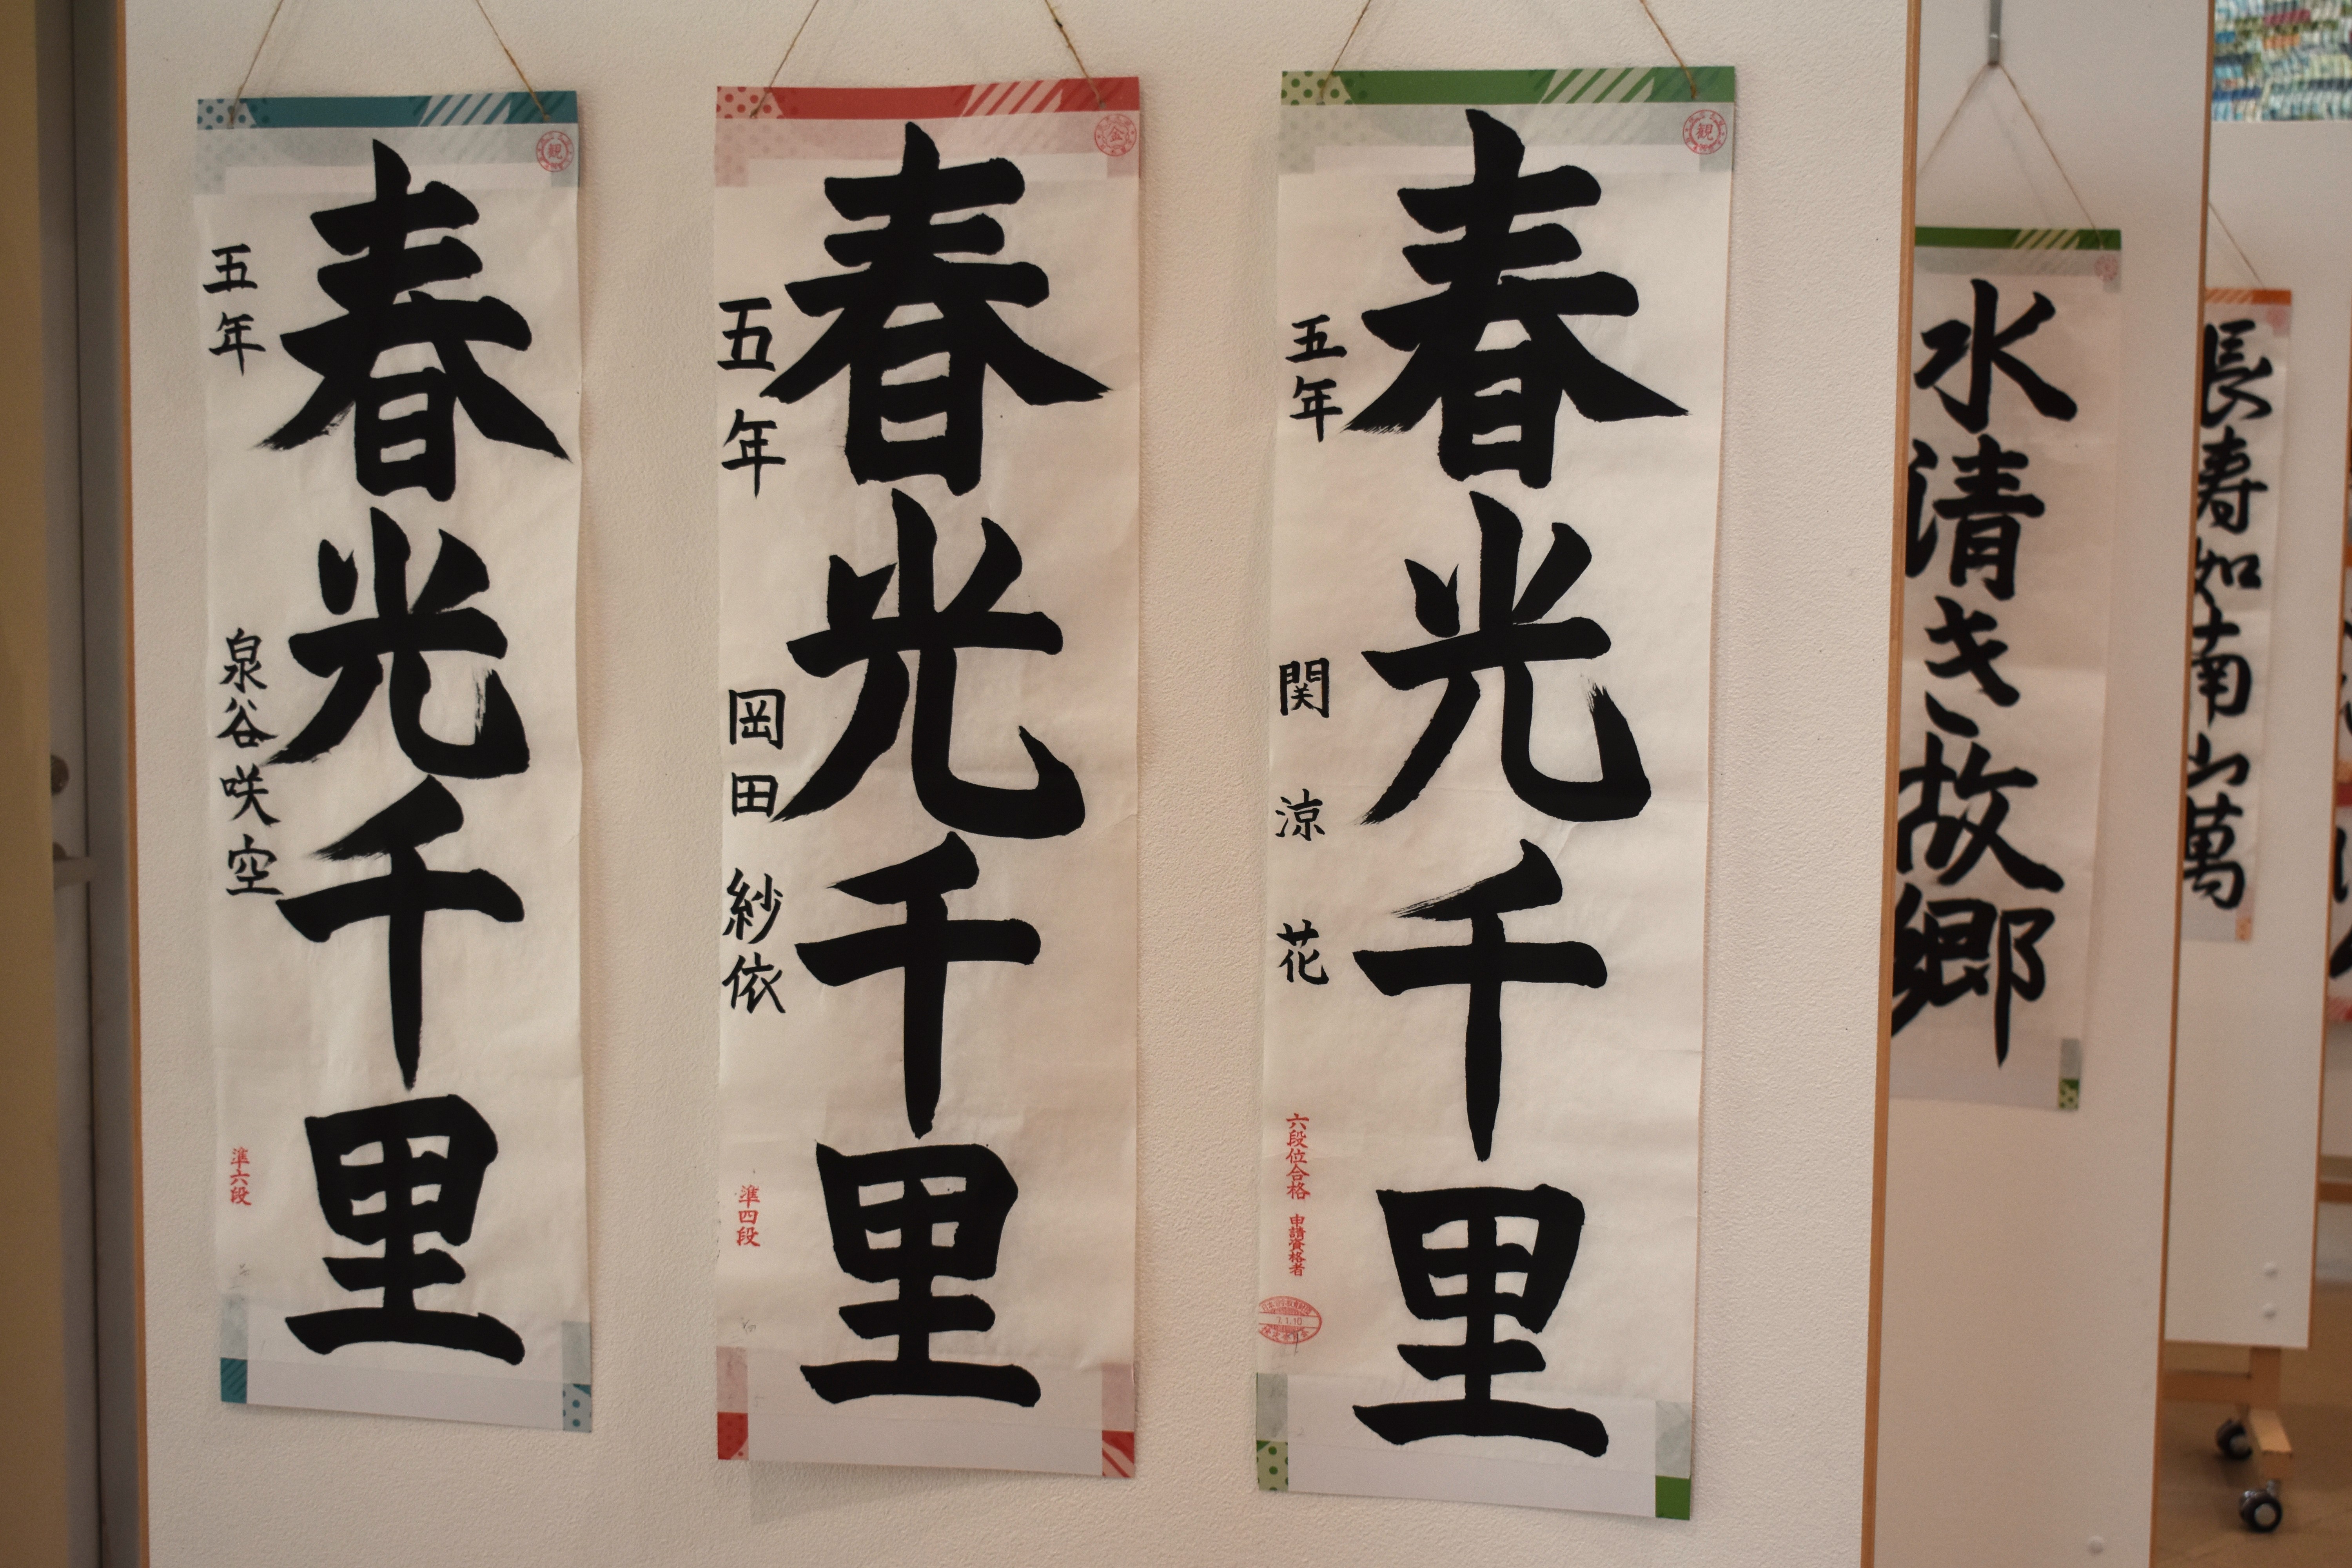 春光千里
五年
泉谷咲空
準六段
観
春光千里
五年
岡田紗依
準四段
金
春光千里
五年
関涼花
六段位合格
申請資格者
1.10
観
水清き故郷
長寿如南山萬